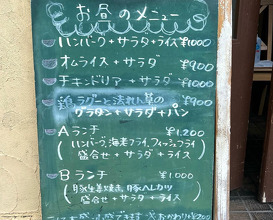 お昼のメニュー
ハンバーグ+サラダ+ライス ¥1000
オムライス+サラダ ¥900
チキンドリア+サラダ ¥1000
鶏ラグーとほうれん草の ¥900
グラタン+サラダ+パン
Aランチ ¥1,200
(ハンバーグ、海老フライ、フィッシュフライ
盛合せ+サラダ+ライス)
Bランチ ¥1,000
(豚生姜焼き、豚ヒレカツ
盛合せ+サラダ+ライス)